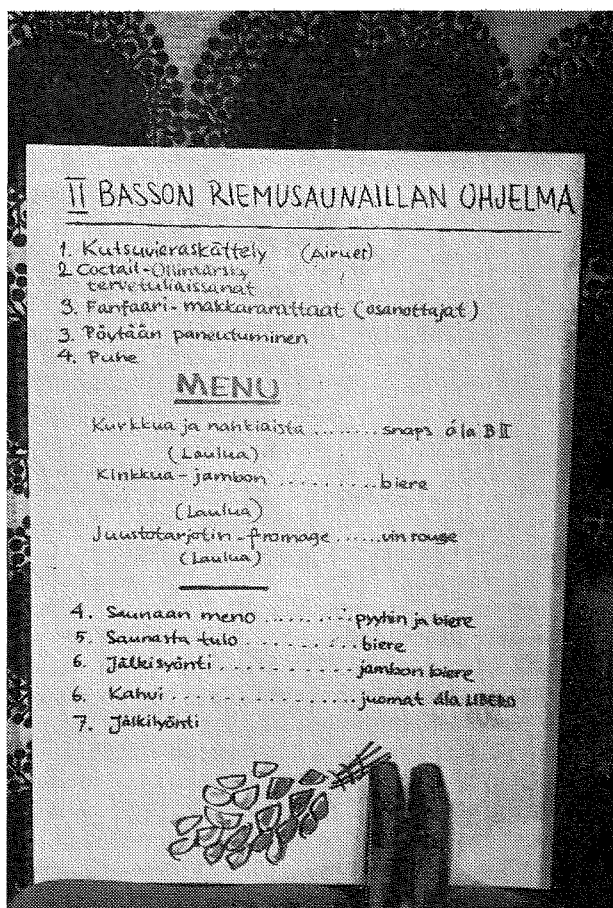 II BASSON RIEMUSAUNAILLAN OHJELMA
1. Kutsuvieraskättely (Airuet)
2. Coctail-Ollintärsky
tervetuliaissanat
3. Fanfaari-makkararattaat (osanottajat)
3. Pöytään paneutuminen
4. Puhe
MENU
Kurkkua ja nahkiaista ........ snaps ála B II
(Laulua)
Kinkkua - jambon .......... biere
(Laulua)
Juustotarjotin - fromage ...... vin rouge
(Laulua)
4. Saunaan meno .......... pyyhin ja biere
5. Saunasta tulo .......... biere
6. Jälkisyönti .............. jambon biere
6. Kahvi .................. juomat ála LIBERO
7. Jälkilyönti